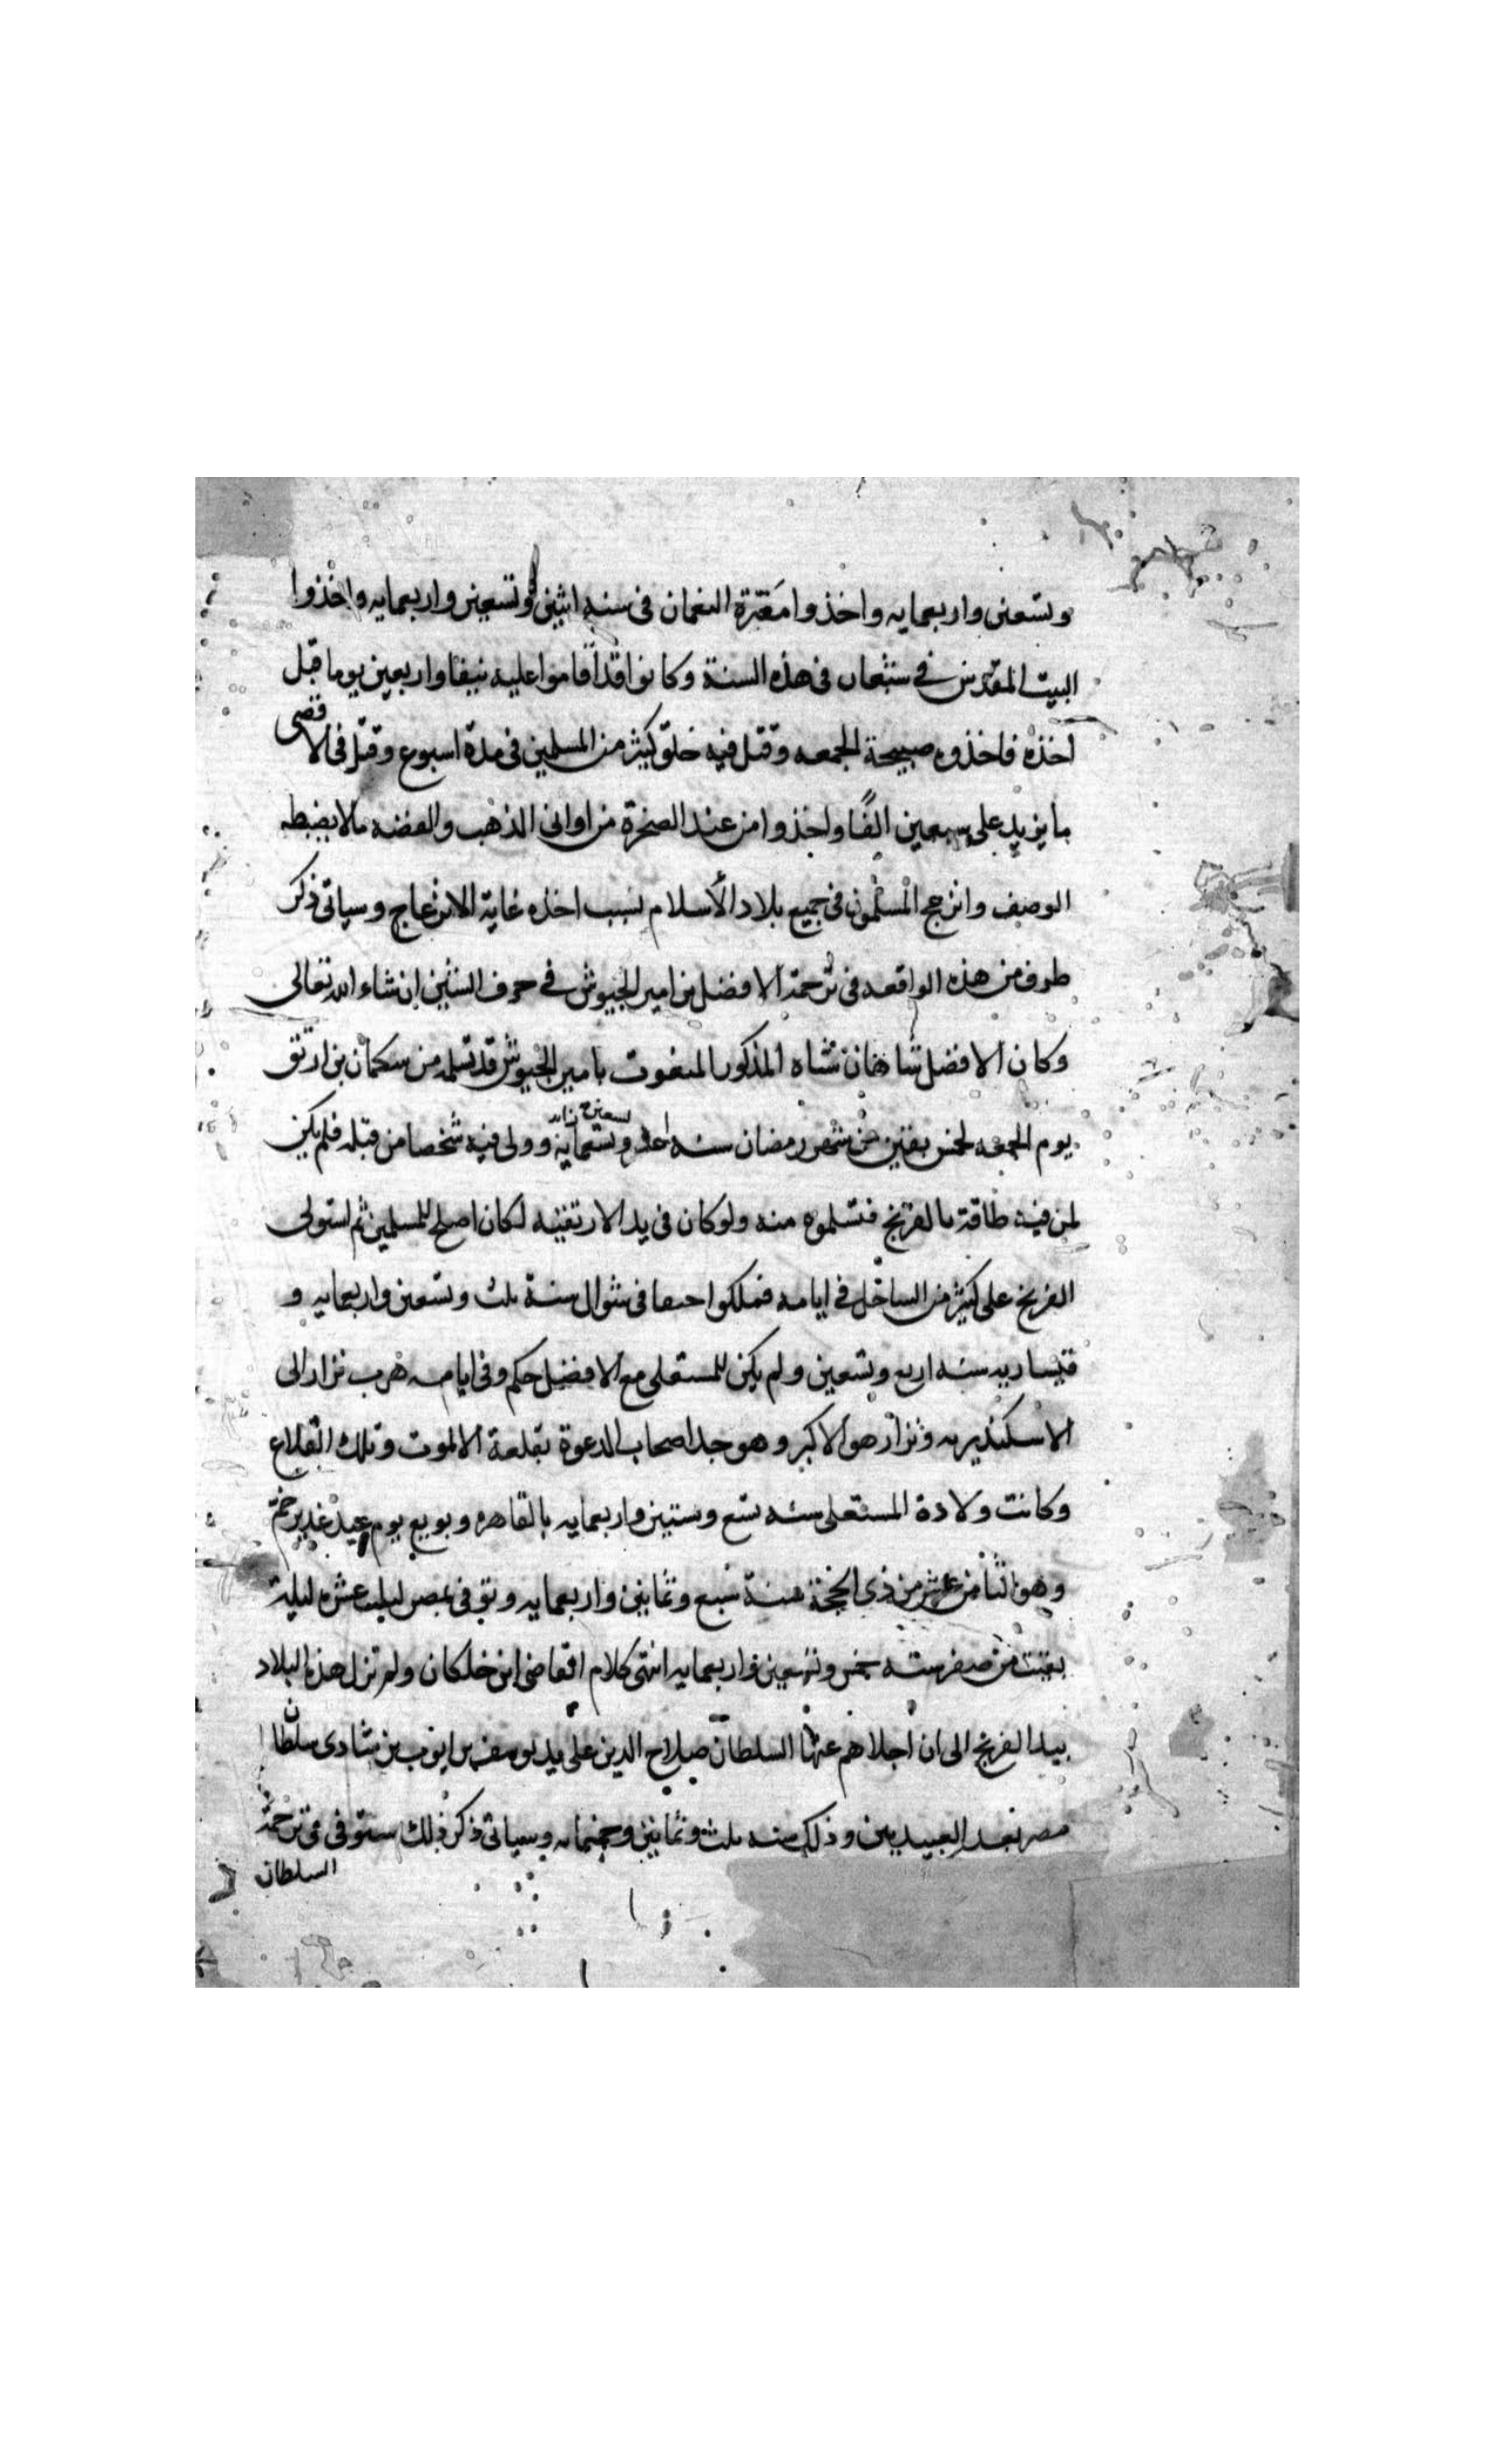 وتسعين واربعمايه واخذوا معرة النعمان فى سنه اثنين وتسعين واربعمايه واخذوا
البيت المقدس فى شعبان فى هذه السنة وكانوا قد اقاموا عليه نيفا واربعين يوما قبل
اخذه فاخذوه صبيحة الجمعه وقتل فيه خلق كثير من المسلمين فى مدة اسبوع وقتل فى الاقصى
ما يزيد على سبعين الفًا واخذوا من عند الصخرة من اوانى الذهب والفضه مالا يضبطه
الوصف وانزعج المسلمون فى جميع بلاد الأسلام بسبب اخذه غاية الانزعاج وسياتى ذكر
طرف من هذه الواقعه فى ترجمة الافضل بن امير الجيوش فى حرف الشين ان شاء الله تعالى
وكان الافضل شاهان شاه المذكور المنعوت بامير الجيوش قد تسلمه من سكمان بن ارتق
يوم الجمعه لخمس بقين من شهر رمضان سنه احد وتسعماية وولى فيه شخصا من قبله فلم يكن
لمن فيه طاقة بالفرنج فتسلموه منه ولو كان فى يد الارتقيه لكان اصلح للمسلمين ثم استولى
الفرنج على كثير من الساحل فى ايامه فملكوا حيفا فى شوال سنة ثلث وتسعين واربعمايه و
قيساريه سنه اربع وتسعين ولم يكن للمستعلى مع الافضل حكم وفى ايامه هرب نزار الى
الاسكندريه ونزار هو الاكبر وهو جد اصحاب الدعوة بقلعة الالموت وتلك القلاع
وكانت ولادة المستعلى سنه تسع وستين واربعمايه بالقاهره وبويع يوم عيد غدير خم
وهو الثامن عشر من ذى الحجة سنة سبع وثمانين واربعمايه وتوفى بمصر لثلث عشره ليلة
بقيت من صفر سنه خمس وتسعين واربعمايه انتهى كلام القاضى ابن خلكان ولم تزل هذه البلاد
بيد الفرنج الى ان اجلاهم عنها السلطان صلاح الدين على يد يوسف بن ايوب بن شادى سلطان
مصر بعد العبيديين وذلك سنه ثلث وثمانين وخمسمايه وسياتى ذكر ذلك ستوفى فى ترجمة
السلطان